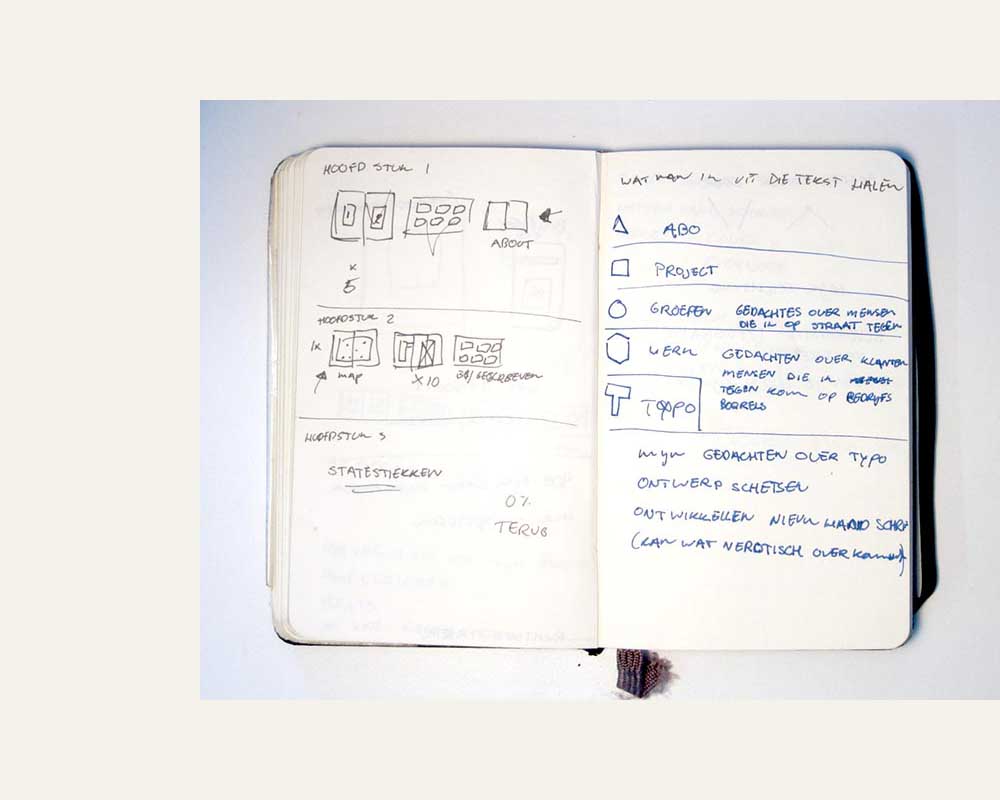 HOOFD STUK 1
ABOUT
x
5
HOOFDSTUK 2
1x
map
X10
HOOFDSTUK 3
STATESTIEKKEN
0%
TERUG
WAT KAN IK UIT DIE TEKST HALEN
ABO
PROJECT
GROEPEN GEDACHTES OVER MENSEN
DIE IK OP STRAAT TEGEN
WERK GEDACHTEN OVER KLANTEN
MENSEN DIE IK
TEGEN KOM OP BEDRIJFS
BORRELS
TYPO
mijn GEDACHTEN OVER TYPO
ONTWERP SCHETSEN
ONTWIKKELLEN NIEUW HAND SCHR
(KAN WAT NEROTISCH OVERkomen)